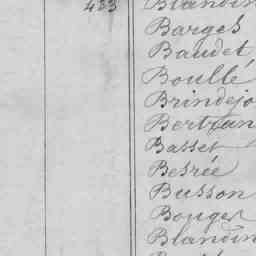 433 Blandin
Barges
Baudet
Boullé
Brindejo
Bertran
Basset
Besrée
Busson
Bouger
Blandin